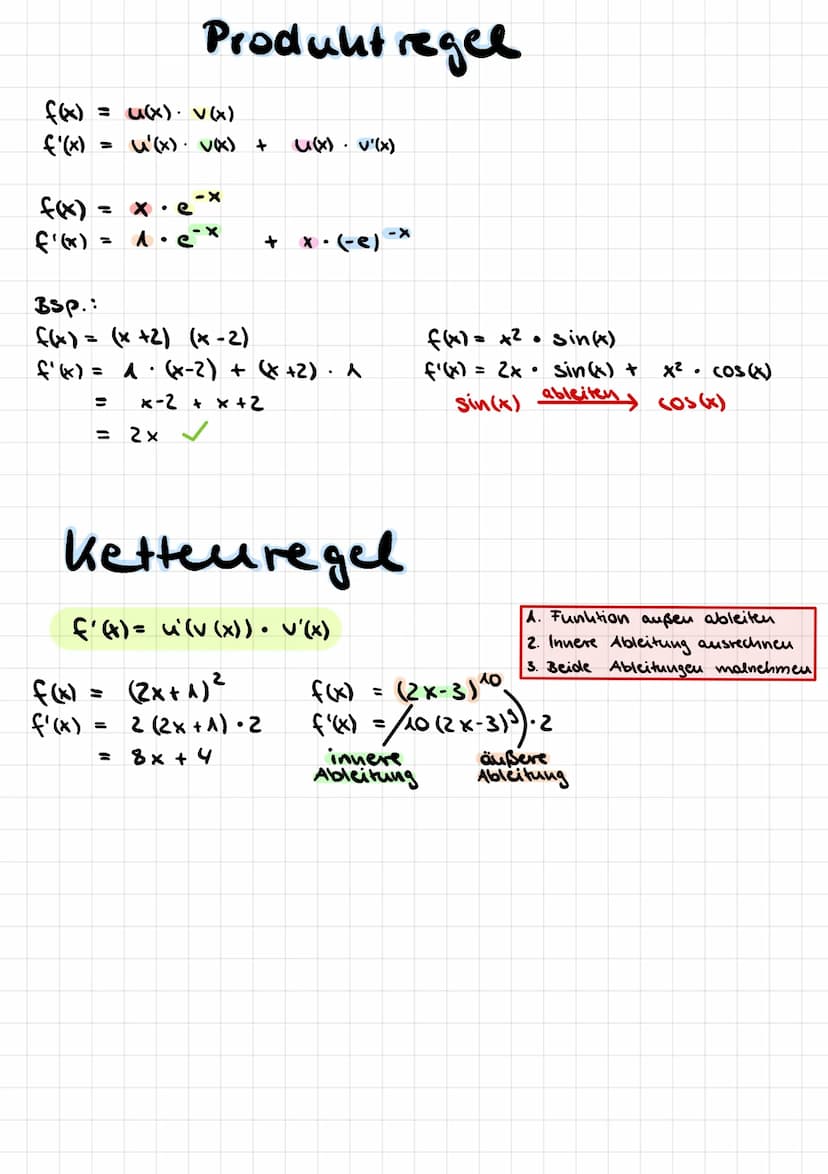 Produktregel
f(x) = u(x) · v(x)
f'(x) = u'(x) · v(x) + u(x) · v'(x)
f(x) = x · e^-x
f'(x) = 1 · e^-x + x · (-e)^-x
Bsp.:
f(x) = (x +2) (x -2)
f'(x) = 1 · (x-2) + (x +2) · 1
= x-2 + x +2
= 2x ✓
f(x) = x² · sin(x)
f'(x) = 2x · sin(x) + x² · cos(x)
sin(x) ableiten → cos(x)
Kettenregel
f'(x) = u'(v(x)) · v'(x)
1. Funktion außen ableiten
2. Innere Ableitung ausrechnen
3. Beide Ableitungen malnehmen
f(x) = (2x+1)²
f'(x) = 2 (2x+1) · 2
= 8x + 4
f(x) = (2x-3)^10
f'(x) = 10 (2x-3)^9 · 2
innere Ableitung
äußere Ableitung